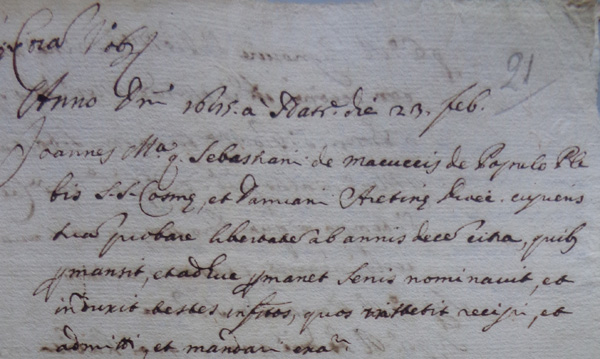 21
Anno Dnī 1655. a Natē. die 23. feb.
Joannes Mᵃ q. Sebastiani de macuccis de Populo Ple
bis S.S. Cosmę, et Damiani Aretinę Dioec. cupiens
suā probare libertatē ab annis decē citra, quib.
pmansit, et adhuc pmanet Senis nominavit, et
induxit testes infrōs, quos recipi, et
admitti, et mandari exā.